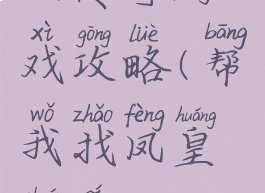 xì gōng lüè bāng
戏攻略(帮
wǒ zhǎo fèng huáng
我找凤皇